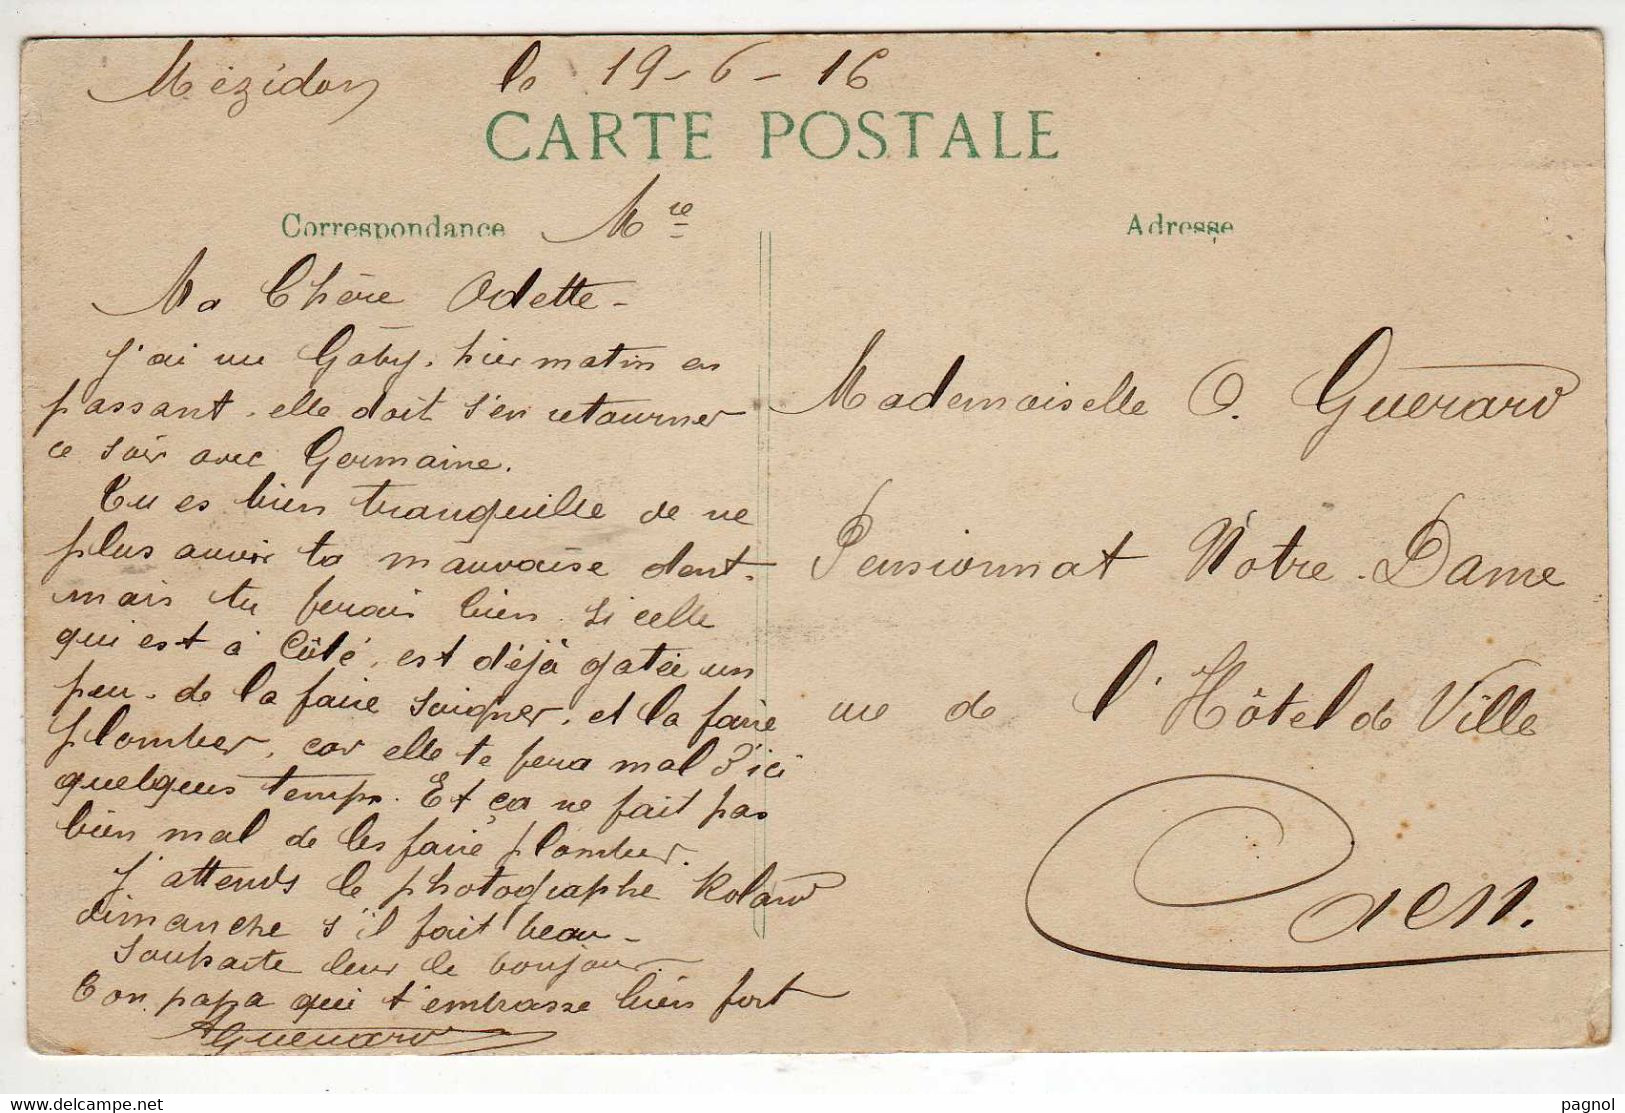 Mézidon le 19-6-16
CARTE POSTALE
Correspondance
Adresse
M^lle
Ma Chère Odette -
J'ai vu Gaby, hier matin en
passant, elle doit s'en retourner
ce soir avec Germaine.
Tu es bien tranquille de ne
plus avoir ta mauvaise dent.
mais tu ferais bien si celle
qui est à Côté, est déjà gatée un
peu - de la faire soigner, et la faire
plomber, car elle te fera mal d'ici
quelques temps. Et ça ne fait pas
bien mal de les faire plomber.
J'attends le photographe Roland
dimanche s'il fait beau -
Souhaite leur le bonjour
Ton papa qui t'embrasse bien fort
Guerard
Mademoiselle O. Guerard
Pensionnat Notre-Dame
rue de l'Hôtel de Ville
Caen.
Delcampe.net
pagnol